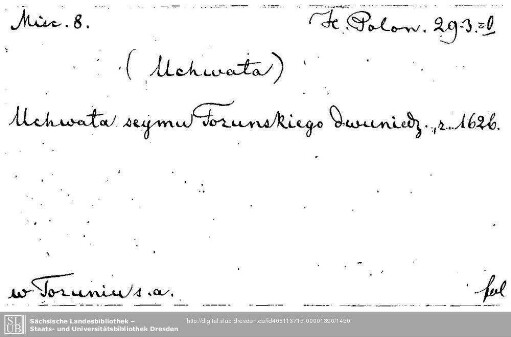 Misc. 8.
H. Polon. 29.3.=0
(Uchwata)
Uchwata seymu Torunskiego dwuniedz., r. 1626.
w Toruniu s.a.
SLUB
Sächsische Landesbibliothek –
Staats- und Universitätsbibliothek Dresden